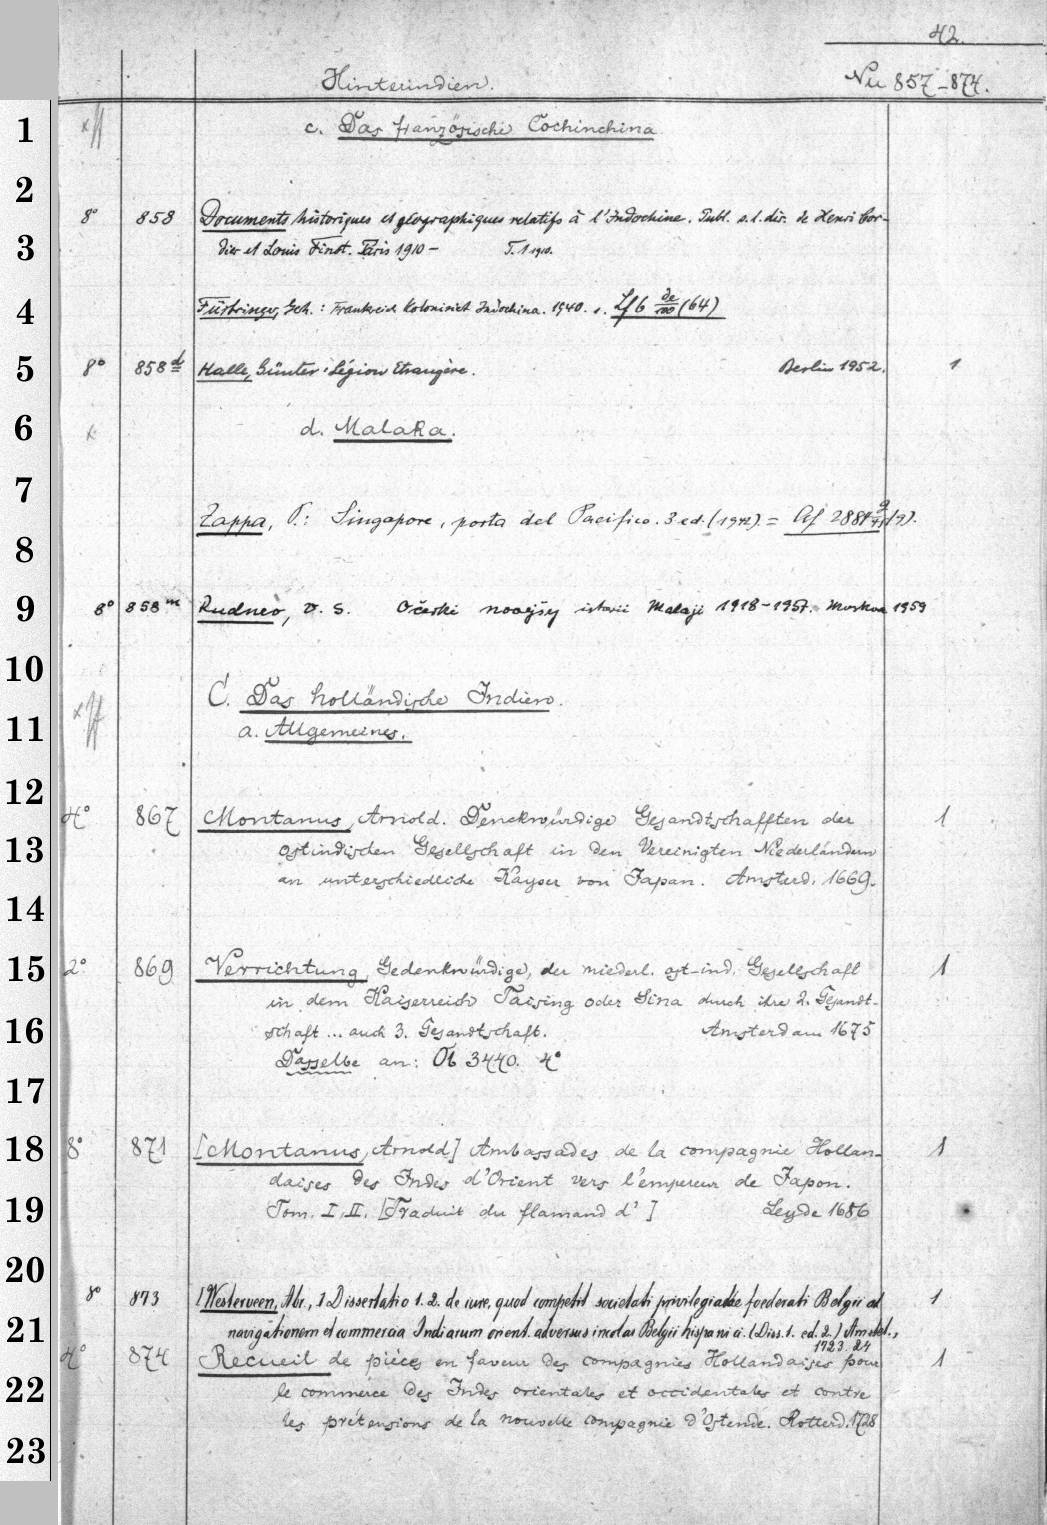 42.
Hinterindien. Nu 857-874.
1 c. Das französische Cochinchina
2
8° 858 Documents historiques et géographiques relatifs à l'Indochine. Publ. s. l. dir. de Henri Cor-
3 dier et Louis Finot. Paris 1910 - T. 1 1910.
4 Fürbringer, Gerh.: Frankreich Kolonisiert Indochina. 1940. s. Zf 6 de/100 (64)
5 8° 858d Halle, Günter: Légion Etrangère. Berlin 1952. 1
6 x d. Malaka.
7
Zappa, P.: Singapore, porta del Pacifico. 3 ed. (1942) =
8
9 8° 858m Rudnev, V. S. Očerki novejšy istorii Malaji 1918-1957. Moskva 1959
10
C. Das holländische Indien.
11 a. Allgemeines.
12
4° 867 Montanus, Arnold. Denckwürdige Gesandtschafften der 1
13 ostindischen Gesellschaft in den Vereinigten Niederländern
an unterschiedliche Kayser von Japan. Amsterd. 1669.
14
15 2° 869 Verrichtung, Gedenkwürdige, der niederl. ost-ind. Gesellschaft 1
in dem Kaiserreich Taising oder Sina durch ihre 2. Gesandt-
16 schaft ... auch 3. Gesandtschaft. Amsterdam 1675
Dasselbe an: Ob 3440. 4°
17
18 8° 871 [Montanus, Arnold] Ambassades de la compagnie Hollan- 1
daises des Indes d'Orient vers l'empereur de Japon.
19 Tom. I. II. [Traduit du flamand d' ] Leyde 1686
20
8° 873 [Westerveen, Abr., ] Dissertatio 1. 2. de iure, quod competit societati privilegiatae foederati Belgii ad 1
21 navigationem et commercia Indiarum orient. adversus incolas Belgii hispanici. (Diss. 1. ed. 2.) Amstel.,
1723. 24
4° 874 Recueil de pièces en faveur des compagnies Hollandaises pour 1
22 le commerce des Indes orientales et occidentales et contre
les prétensions de la nouvelle compagnie d'Ostende. Rotterd. 1728
23